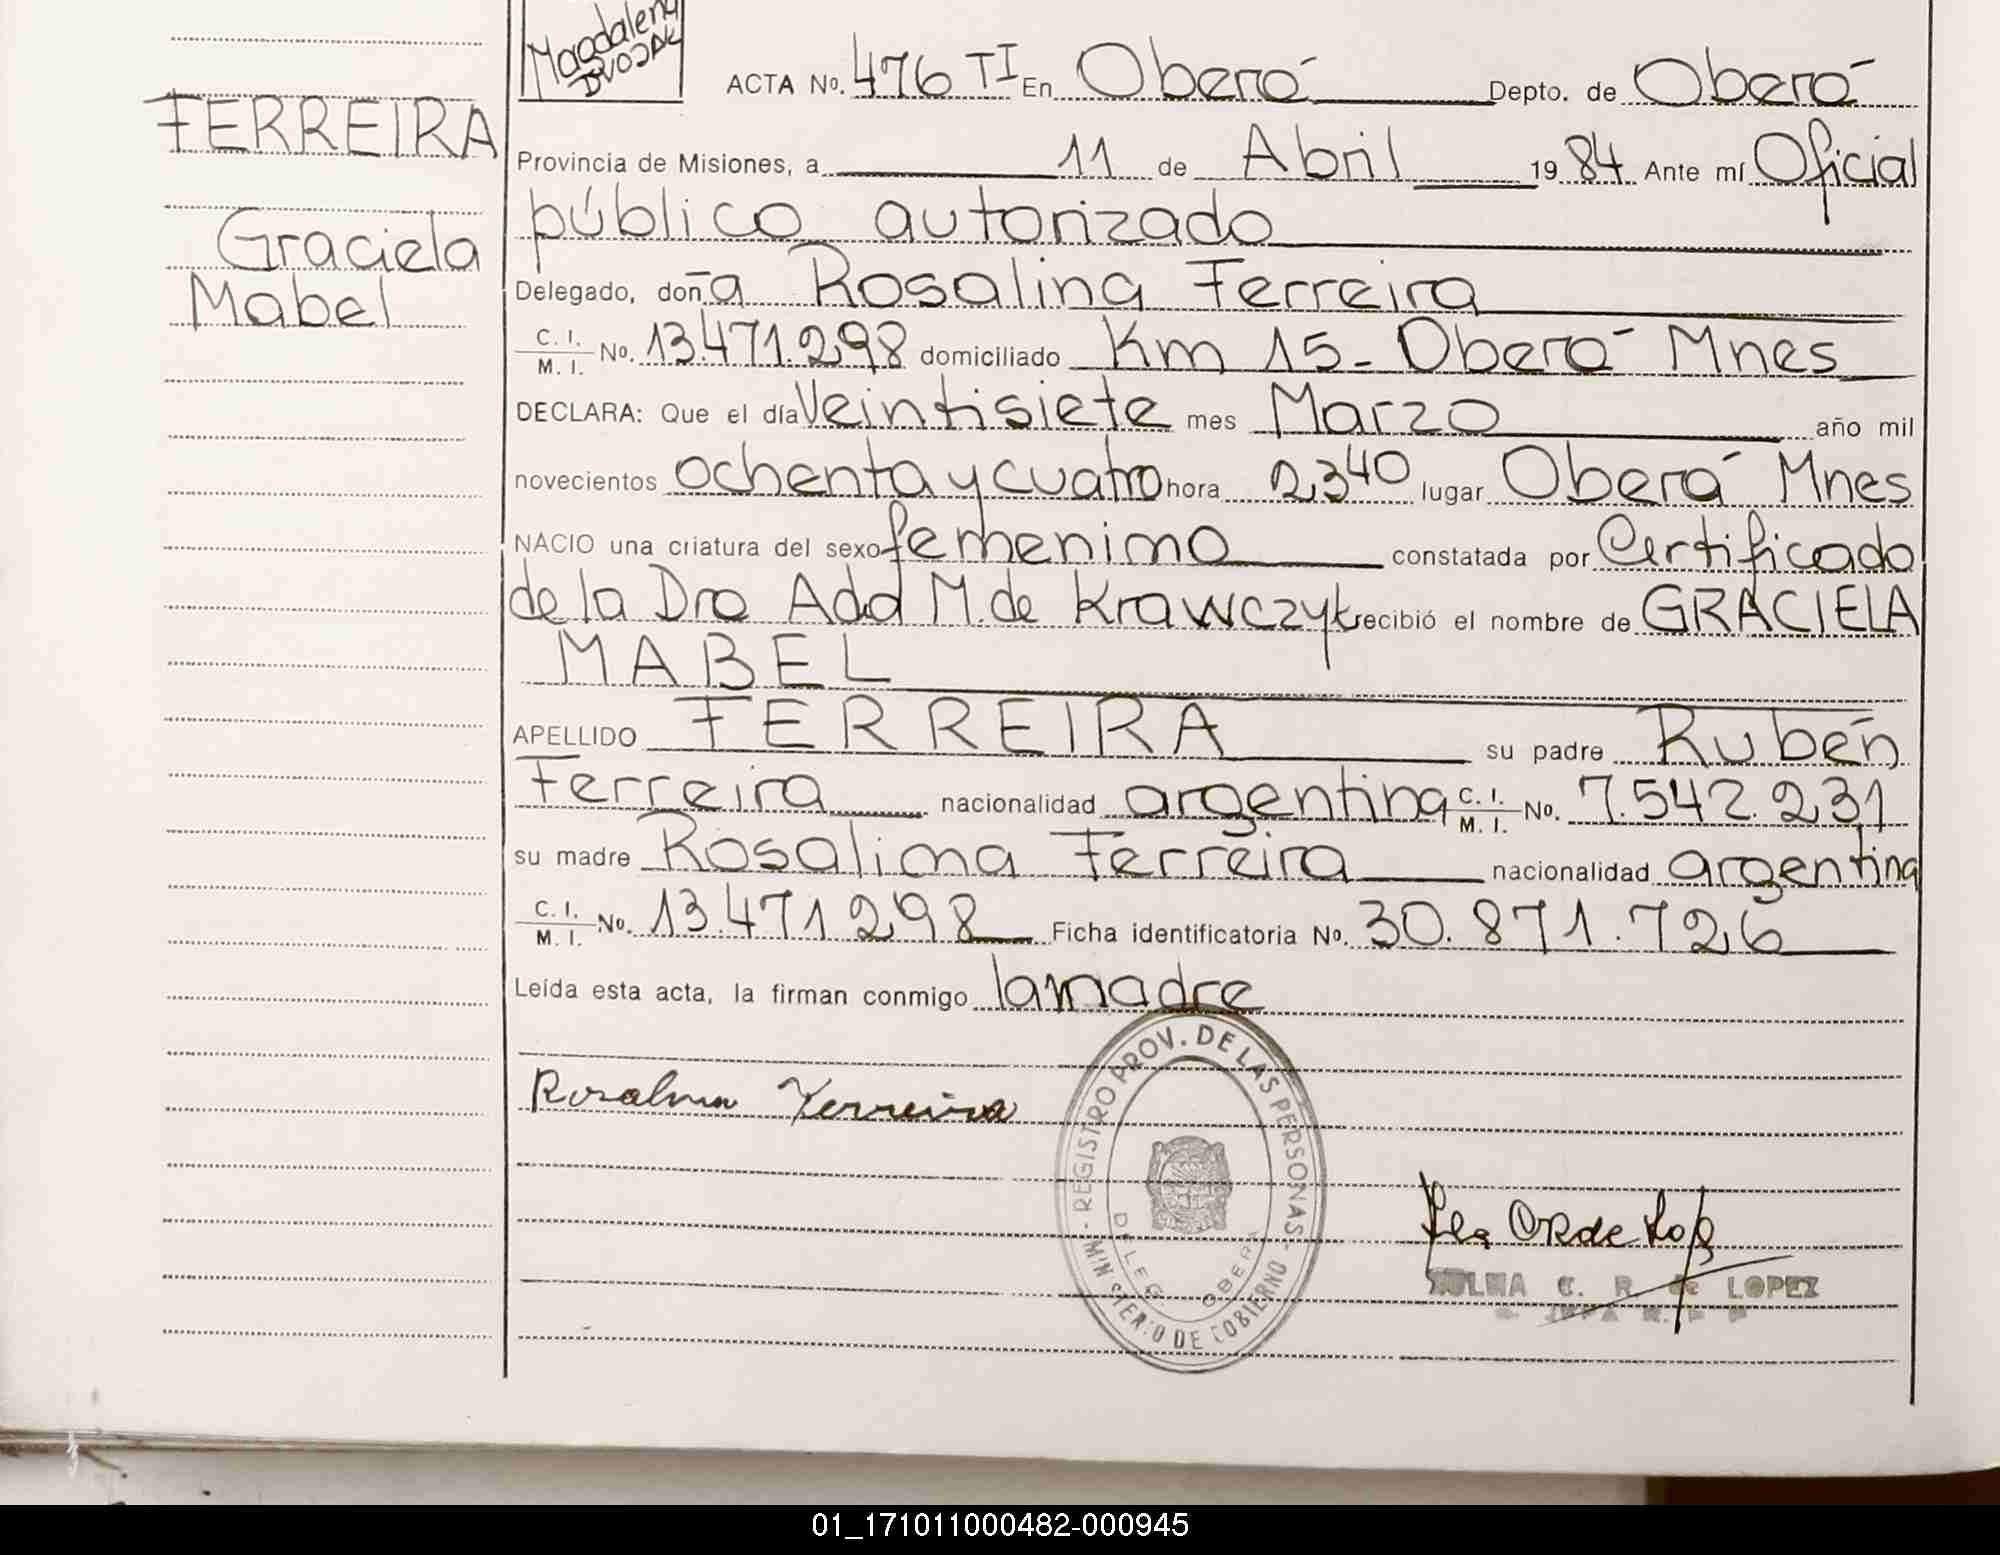 Magdalena
DVOJAK
FERREIRA
Graciela
Mabel
ACTA No. 476 TI En Oberá Depto. de Oberá
Provincia de Misiones, a 11 de Abril 1984 Ante mí Oficial
público autorizado
Delegado, doña Rosalina Ferreira
C. I. M. I. No. 13.471.298 domiciliado Km 15 - Oberá Mnes
DECLARA: Que el día Veintisiete mes Marzo año mil
novecientos ochenta y cuatro hora 2,340 lugar Oberá Mnes
NACIO una criatura del sexo femenino constatada por Certificado
de la Dra Ada M. de Krawczyk recibió el nombre de GRACIELA
MABEL
APELLIDO FERREIRA su padre Rubén
Ferreira nacionalidad argentina C. I. M. I. No. 7.542.231
su madre Rosalina Ferreira nacionalidad argentina
C. I. M. I. No. 13.471.298 Ficha identificatoria No. 30.871.726
Leída esta acta, la firman conmigo la madre
Rosalina Ferreira
REGISTRO PROV. DE LAS PERSONAS
MINISTERIO DE GOBIERNO
DELEG. OBERA
C. R. de LOPEZ
01_171011000482-000945